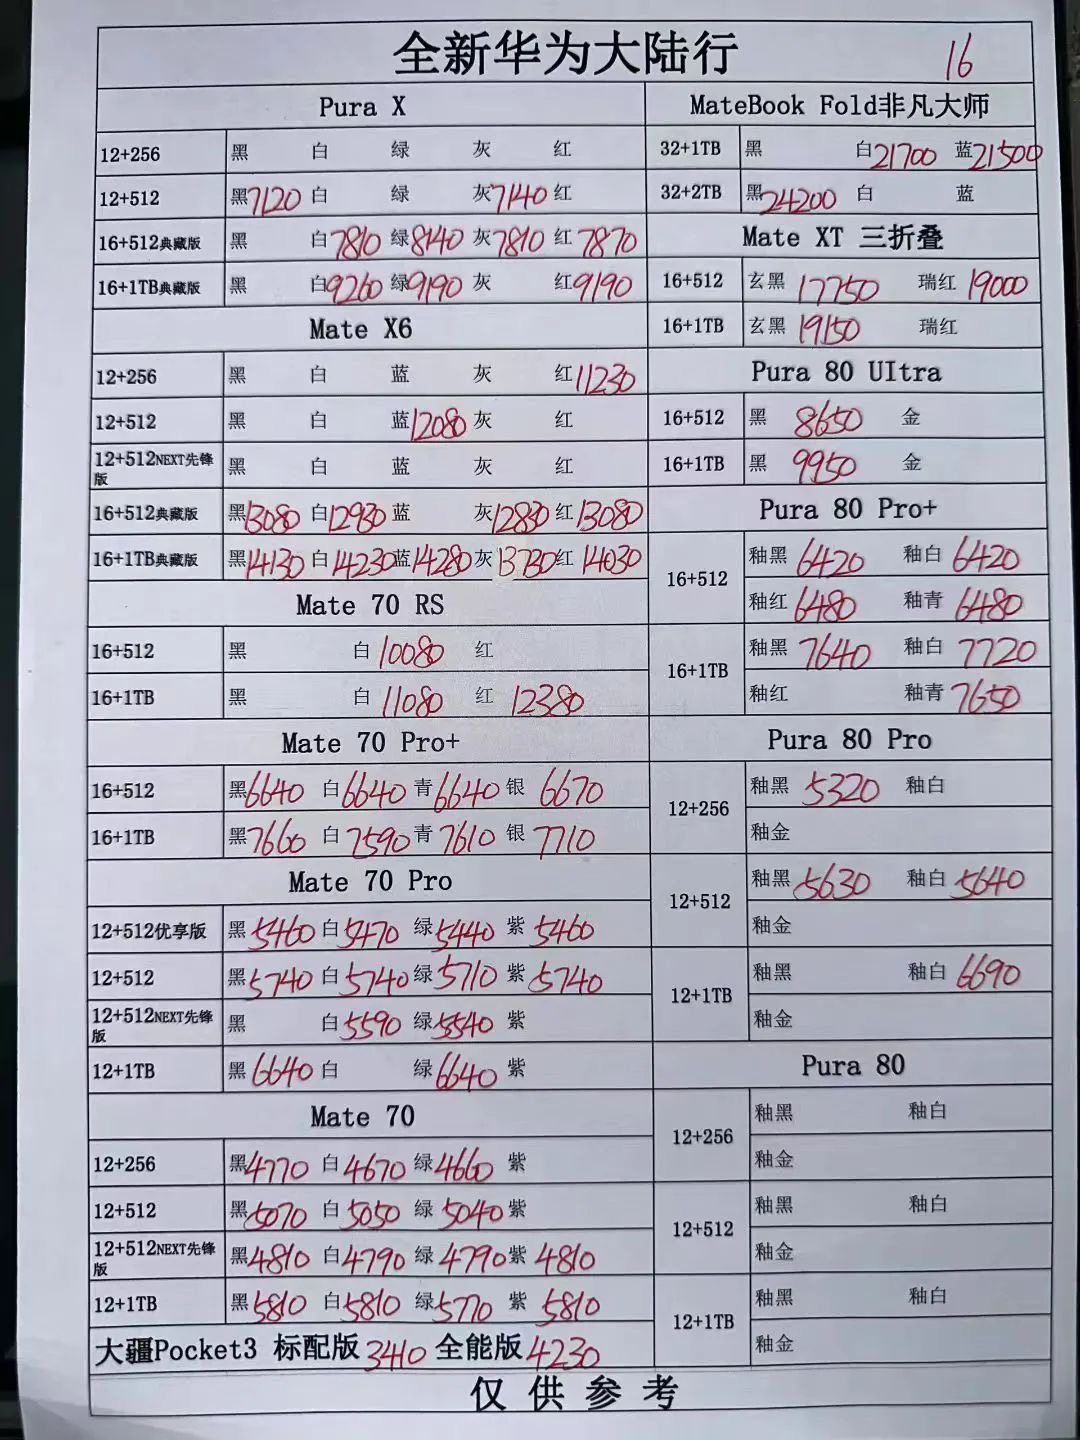 全新华为大陆行 16
Pura X
12+256 黑 白 绿 灰 红
12+512 黑7120 白 绿 灰7140 红
16+512典藏版 黑 白7810 绿8140 灰7810 红7870
16+1TB典藏版 黑 白9260 绿9190 灰 红9190
Mate X6
12+256 黑 白 蓝 灰 红11230
12+512 黑 白 蓝12080 灰 红
12+512NEXT先锋版 黑 白 蓝 灰 红
16+512典藏版 黑13080 白12930 蓝 灰12830 红13080
16+1TB典藏版 黑14130 白14230 蓝14280 灰13730 红14030
Mate 70 RS
16+512 黑 白10080 红
16+1TB 黑 白11080 红12380
Mate 70 Pro+
16+512 黑6640 白6640 青6640 银6670
16+1TB 黑7660 白7590 青7610 银7710
Mate 70 Pro
12+512优享版 黑5460 白5470 绿5440 紫5460
12+512 黑5740 白5740 绿5710 紫5740
12+512NEXT先锋版 黑 白5590 绿5540 紫
12+1TB 黑6640 白 绿6640 紫
Mate 70
12+256 黑4770 白4670 绿4660 紫
12+512 黑5070 白5050 绿5040 紫
12+512NEXT先锋版 黑4810 白4790 绿4790 紫4810
12+1TB 黑5810 白5810 绿5770 紫5810
大疆Pocket3 标配版3410 全能版4230
MateBook Fold非凡大师
32+1TB 黑 白21700 蓝21500
32+2TB 黑24200 白 蓝
Mate XT 三折叠
16+512 玄黑17750 瑞红19000
16+1TB 玄黑19150 瑞红
Pura 80 UItra
16+512 黑8650 金
16+1TB 黑9950 金
Pura 80 Pro+
16+512 釉黑6420 釉白6420
釉红6480 釉青6480
16+1TB 釉黑7640 釉白7720
釉红 釉青7650
Pura 80 Pro
12+256 釉黑5320 釉白
釉金
12+512 釉黑5630 釉白5640
釉金
12+1TB 釉黑 釉白6690
釉金
Pura 80
12+256 釉黑 釉白
釉金
12+512 釉黑 釉白
釉金
12+1TB 釉黑 釉白
釉金
仅供参考